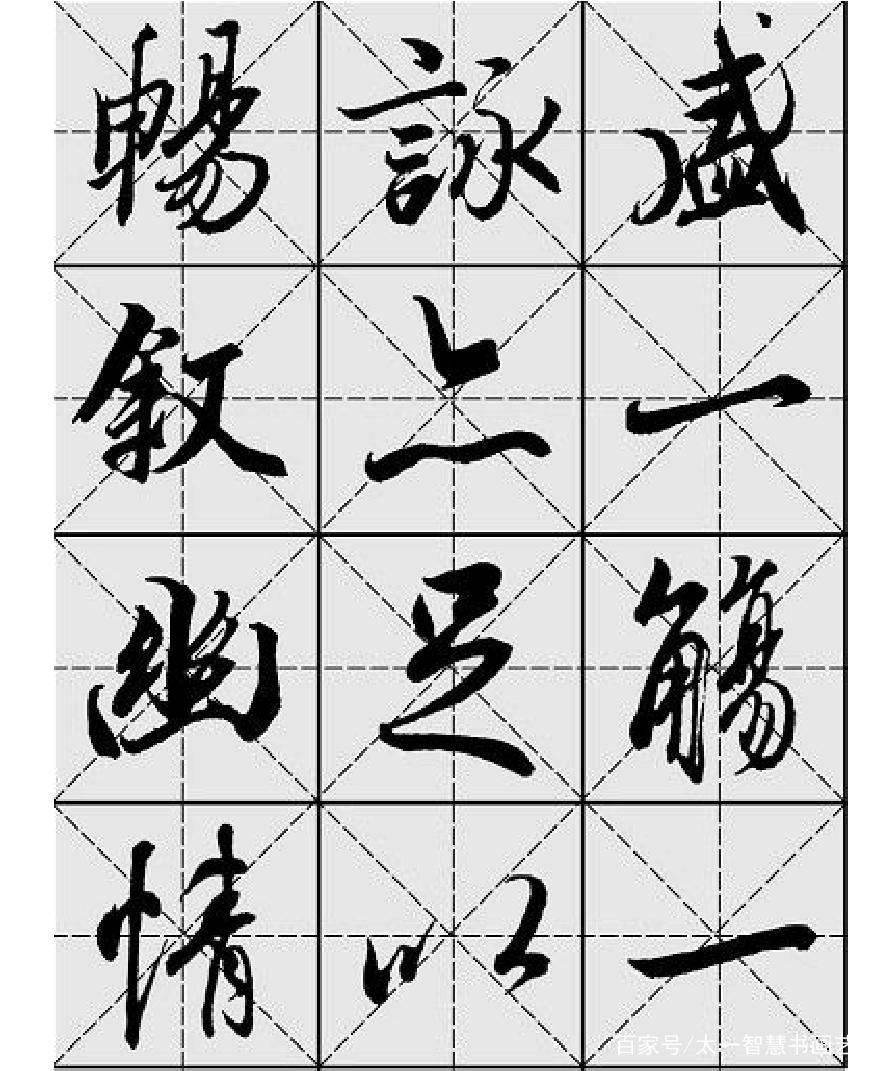 盛一觴一
詠亦足以
暢敘幽情
百家号/太一智慧书画艺